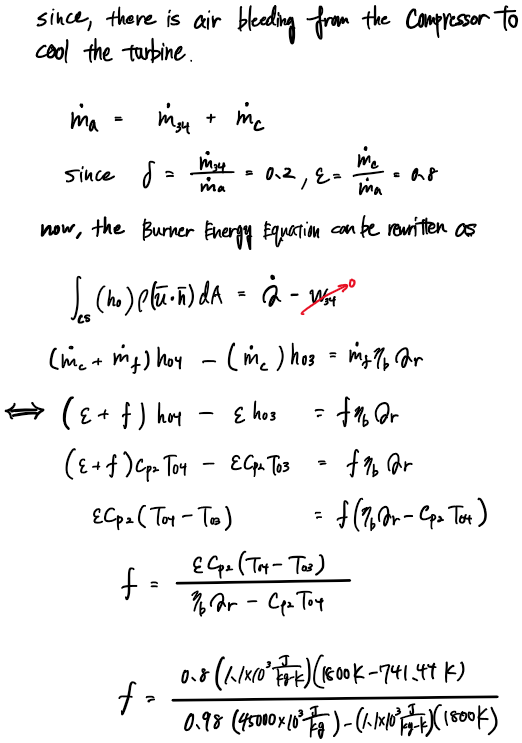 since, there is air bleeding from the Compressor to
cool the turbine.
ṁa = ṁ34 + ṁc
since δ = ṁ34/ṁa = 0.2, ε = ṁc/ṁa = 0.8
now, the Burner Energy Equation can be rewritten as
∫cs (h0) ρ(ū·n̄) dA = Q̇ - W34 → 0
(ṁc + ṁf) h04 - (ṁc) h03 = ṁf ηb Qr
⟺ (ε + f) h04 - ε h03 = f ηb Qr
(ε + f) Cp2 T04 - ε Cp2 T03 = f ηb Qr
ε Cp2 (T04 - T03) = f (ηb Qr - Cp2 T04)
f = ε Cp2 (T04 - T03) / (ηb Qr - Cp2 T04)
f = 0.8 (1.1×10³ J/kg-K)(1800K - 741.47 K) / 0.98 (45000×10³ J/kg) - (1.1×10³ J/kg-K)(1800K)